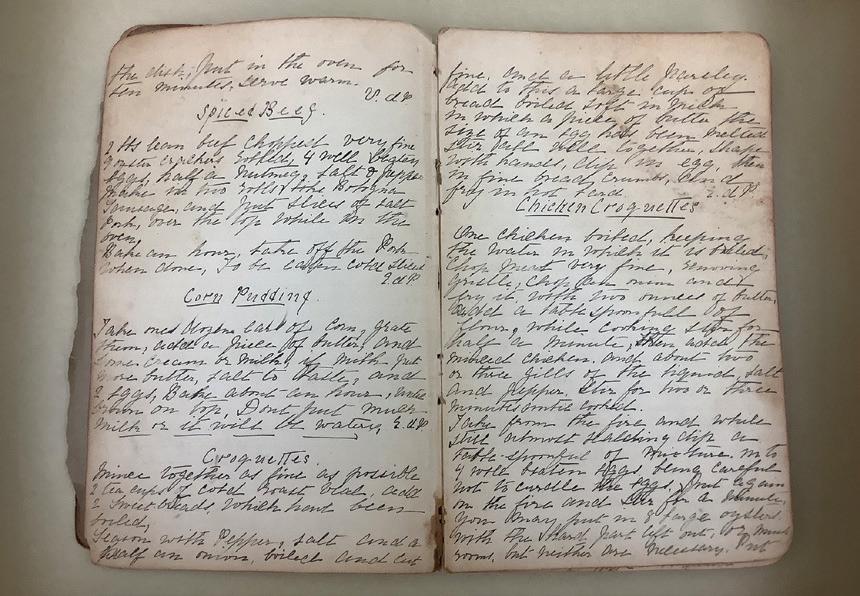 the dish; put in the oven for
ten minutes, serve warm.
V. d P
Spiced Beef.
2 lbs lean beef chopped very fine
crackers rolled, 4 well beaten
eggs, half a nutmeg, salt & pepper
make in two rolls like Bologna
Sausage, and put slices of salt
Pork, over the top while in the
oven,
Bake an hour, take off the Pork
when done, To be eaten cold sliced
V. d P
Corn Pudding.
Take one dozen ears of corn, grate
them, add a piece of butter, and
some cream or milk, if milk put
more butter, salt to taste, and
2 eggs, Bake about an hour,
brown on top, Dont put much
milk or it will be watery, V. d P
Croquettes.
Mince together as fine as possible
2 tea cups of cold roast veal, add
2 sweetbreads, which have been
boiled,
Season with Pepper, salt and a
half an onion, boiled and cut
fine, and a little Parsley.
Add to this a large cup of
bread boiled soft in milk
in which a piece of butter the
size of an egg has been melted
Stir all well together, shape
with hands, dip in egg, then
in fine bread crumbs, and
fry in hot lard.
V. d P
Chicken Croquettes
One chicken boiled, keeping
the water in which it is boiled,
Chop meat very fine, removing
gristle, chop an onion and
fry it, with two ounces of butter,
add a tablespoonful of
flour, while cooking stir for
half a minute, then add the
minced chicken. and about two
or three gills of the liquid, salt
and pepper. Stir for two or three
minutes until cooked.
Take from the fire and while
still almost scalding dip a
table spoonful of mixture into
4 well beaten eggs, being careful
not to curdle the eggs. put again
on the fire and stir for a minute,
You may put in 8 large oysters
with the hard part left out, or mush
rooms, but neither are necessary. Put